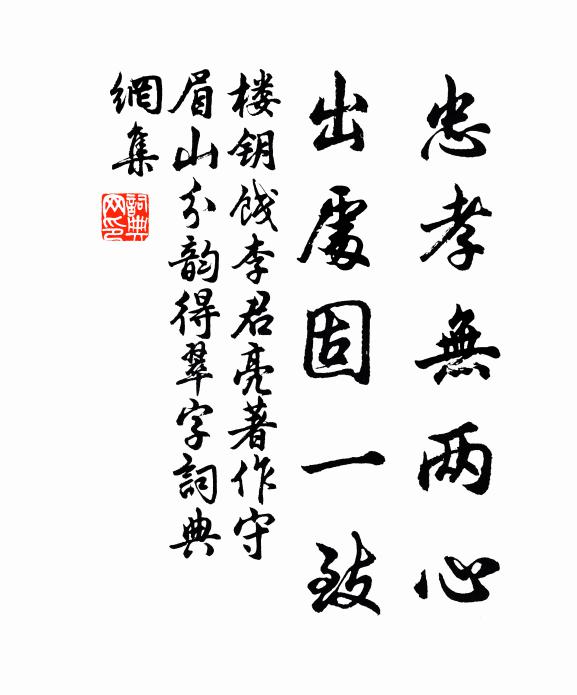 忠孝無两心
出處固一致
楼钥饯李君亮著作守
眉山分韵得翠字詞典
網集
詞典
网印